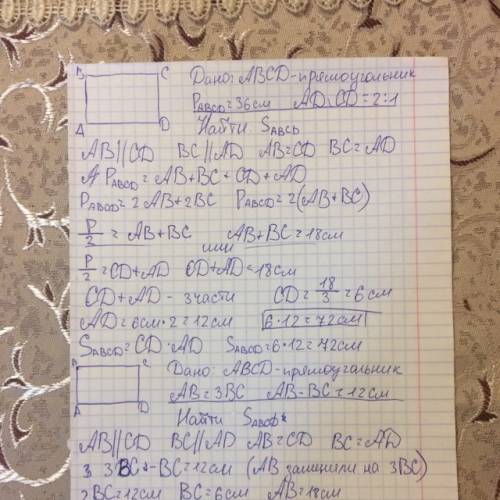 B C
A D
Дано: ABCD - прямоугольник
PABCD = 36см AD:CD = 2:1
Найти SABCD
AB||CD BC||AD AB=CD BC=AD
PABCD = AB+BC+CD+AD
PABCD = 2AB+2BC PABCD = 2(AB+BC)
P/2 = AB+BC AB+BC=18см
или
P/2 = CD+AD CD+AD=18см
CD+AD - 3части CD = 18/3 = 6см
AD=6см·2=12см 6·12=72см
SABCD = CD·AD SABCD = 6·12=72см
B C
A D
Дано: ABCD - прямоугольник
AB=3BC AB-BC=12см
Найти SABCD
AB||CD BC||AD AB=CD BC=AD
3BC-BC=12см (AB заменили на 3BC)
2BC=12см BC=6см AB=18см